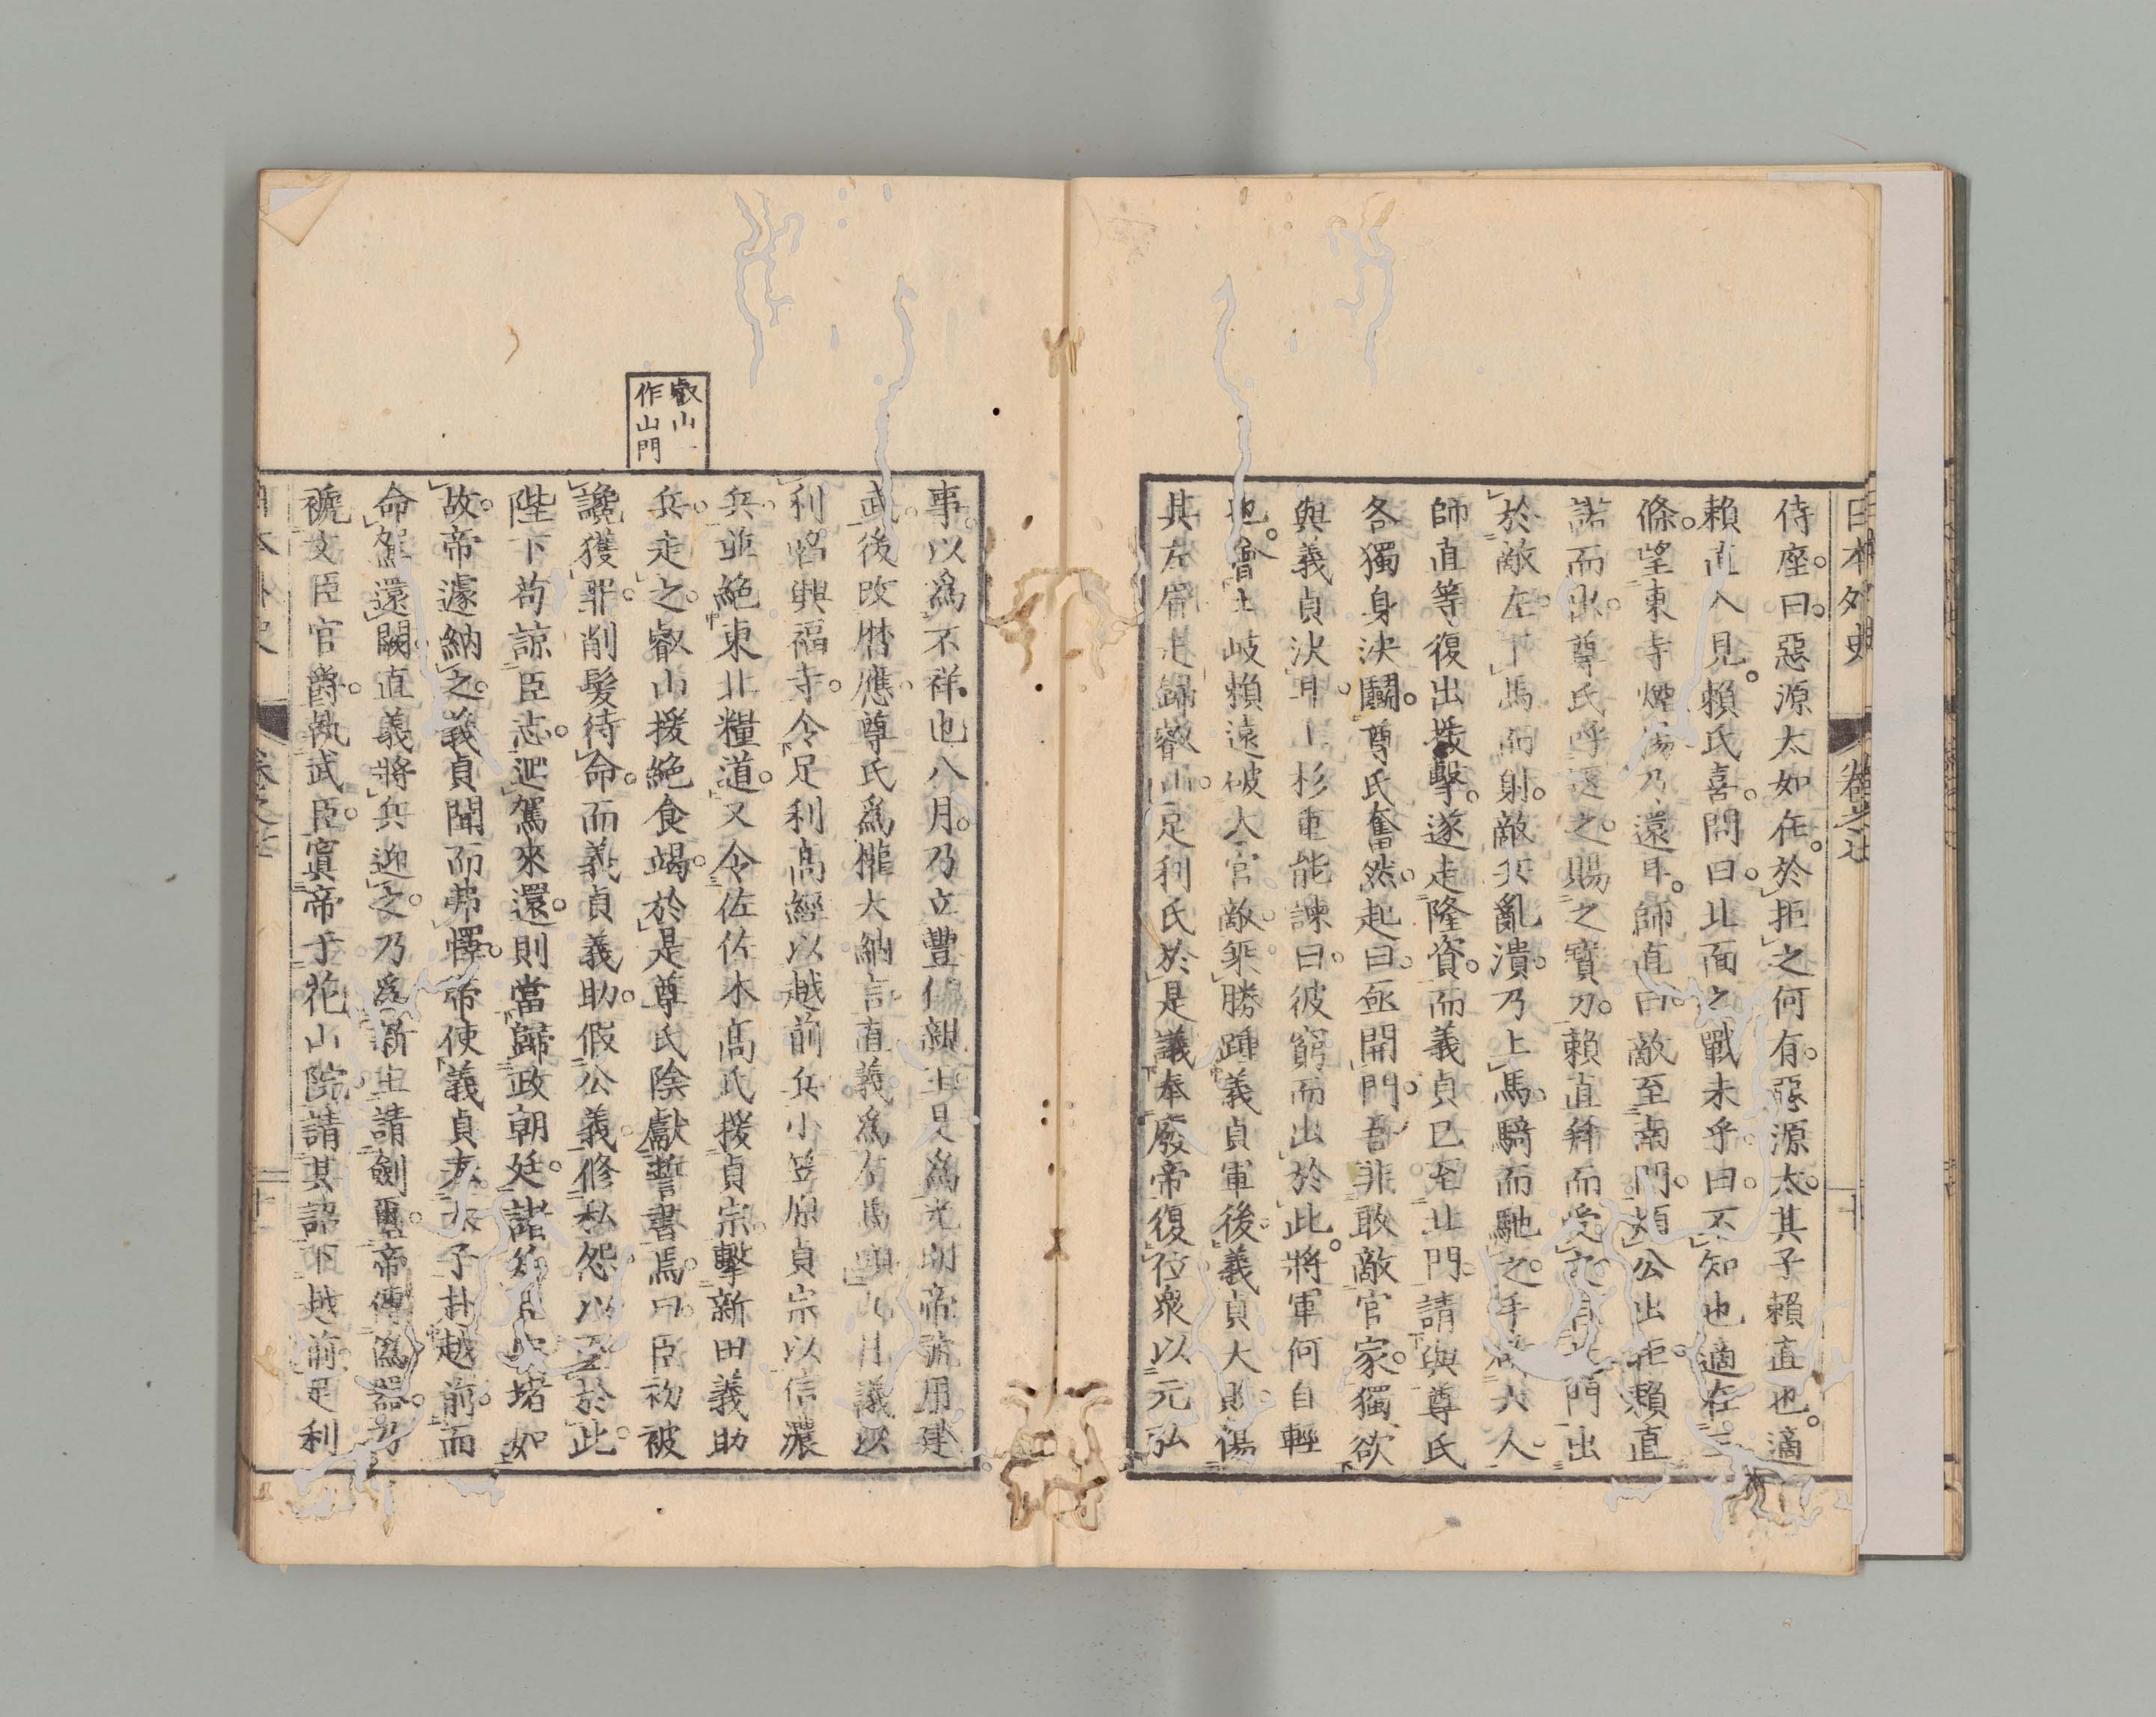 日本外史 卷之七 十
侍座。曰。惡源太如在。於拒之何有。惡源太。其子賴直也。適
賴直入見。賴氏喜。問曰。北面之戰未乎。曰。不知也。適在三
條。望東寺煙焔乃還耳。師直曰。敵至南門。煩公出拒。賴直
諾而出。尊氏呼還之。賜之寶刀。賴直拜而受之。門出
於敵左。下馬而射。敵兵亂潰。乃上馬。騎而馳之。手六人。
師直等復出擊。遂走隆資。而義貞已至北門。請與尊氏
各獨身決鬪。尊氏奮然。起曰。亟開門。吾非敢敵官家。獨欲
與義貞決耳。上杉重能諫曰。彼窮而出於此。將軍何自輕
也。會土岐賴遠破大官。敵乘勝踵義貞軍後。義貞大敗。傷
其左眉。走歸叡山。足利氏於是議奉廢帝復位。衆以元弘
事。以爲不祥也。八月。乃立豐仁親王。是爲光明帝。號用建
武。後改曆應。尊氏爲權大納言。直義爲左馬頭。九月。議以
利啗興福寺。令足利高經以越前兵小笠原貞宗以信濃
兵並絕東北糧道。又令佐佐木高氏援貞宗。擊新田義助
兵。走之。叡山援絕食竭。於是尊氏陰獻誓書焉。曰。臣初被
讒獲罪。削髮待命。而義貞義助。假公義修私怨。以至於此。
陛下苟諒臣志。迴駕來還。則當歸政朝廷。諸臣安堵如
故。帝遽納之。義貞聞而弗懌。帝使義貞夾太子赴越前。而
命駕還闕。直義將兵迎之。乃爲新主請劍璽。帝傳僞器。乃
褫文臣官爵。執武臣。寘帝于花山院。請其詔下越前。足利
叡山一
作山門